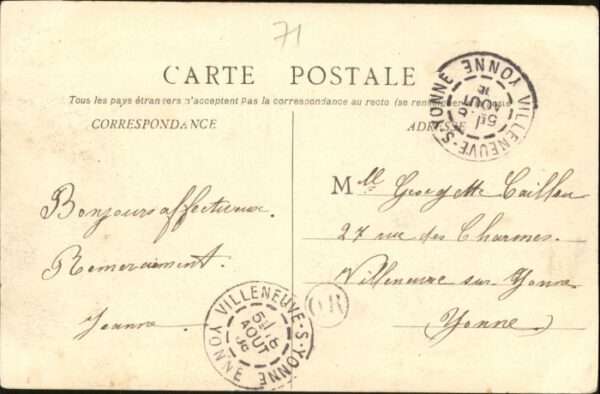 71
CARTE POSTALE
Tous les pays étrangers n'acceptent pas la correspondance au recto (se
CORRESPONDANCE
ADRESSE
VILLENEUVE-S-YONNE YONNE
AOUT
Mlle Georgette Caillau
27 rue des Charmes.
Villeneuve sur Yonne
(Yonne)
Bonjours affectueux.
Remerciement.
Jeanne
OR
VILLENEUVE-S-YONNE YONNE
AOUT